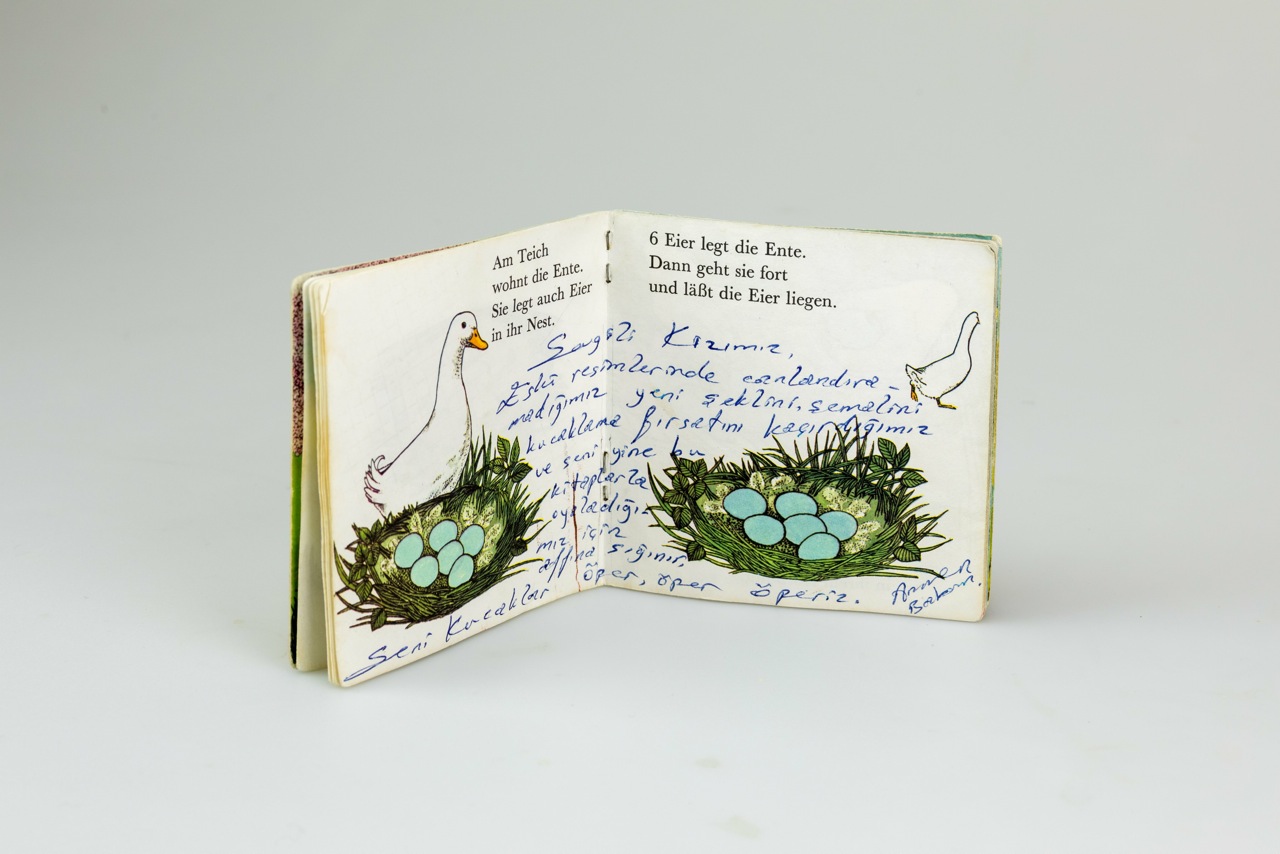 Am Teich
wohnt die Ente.
Sie legt auch Eier
in ihr Nest.
6 Eier legt die Ente.
Dann geht sie fort
und läßt die Eier liegen.
Sevgili Kızımız,
Eski resimlerinde canlandıra-
madığımız yeni şeklini, şemalini
kucaklama fırsatını kaçırdığımız
ve seni yine bu
kitaplarla
oyaladığı-
mız için
affına sığınır,
Seni kucaklar öper, öper öperiz.
Annen
Baban.